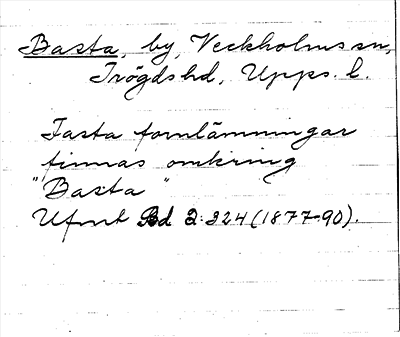 Basta, by, Veckholms sn,
Trögds hd, Upps. l.
Fasta fornlämningar
finnas omkring
"Basta"
Ufmt Bd 2:224 (1877-90).